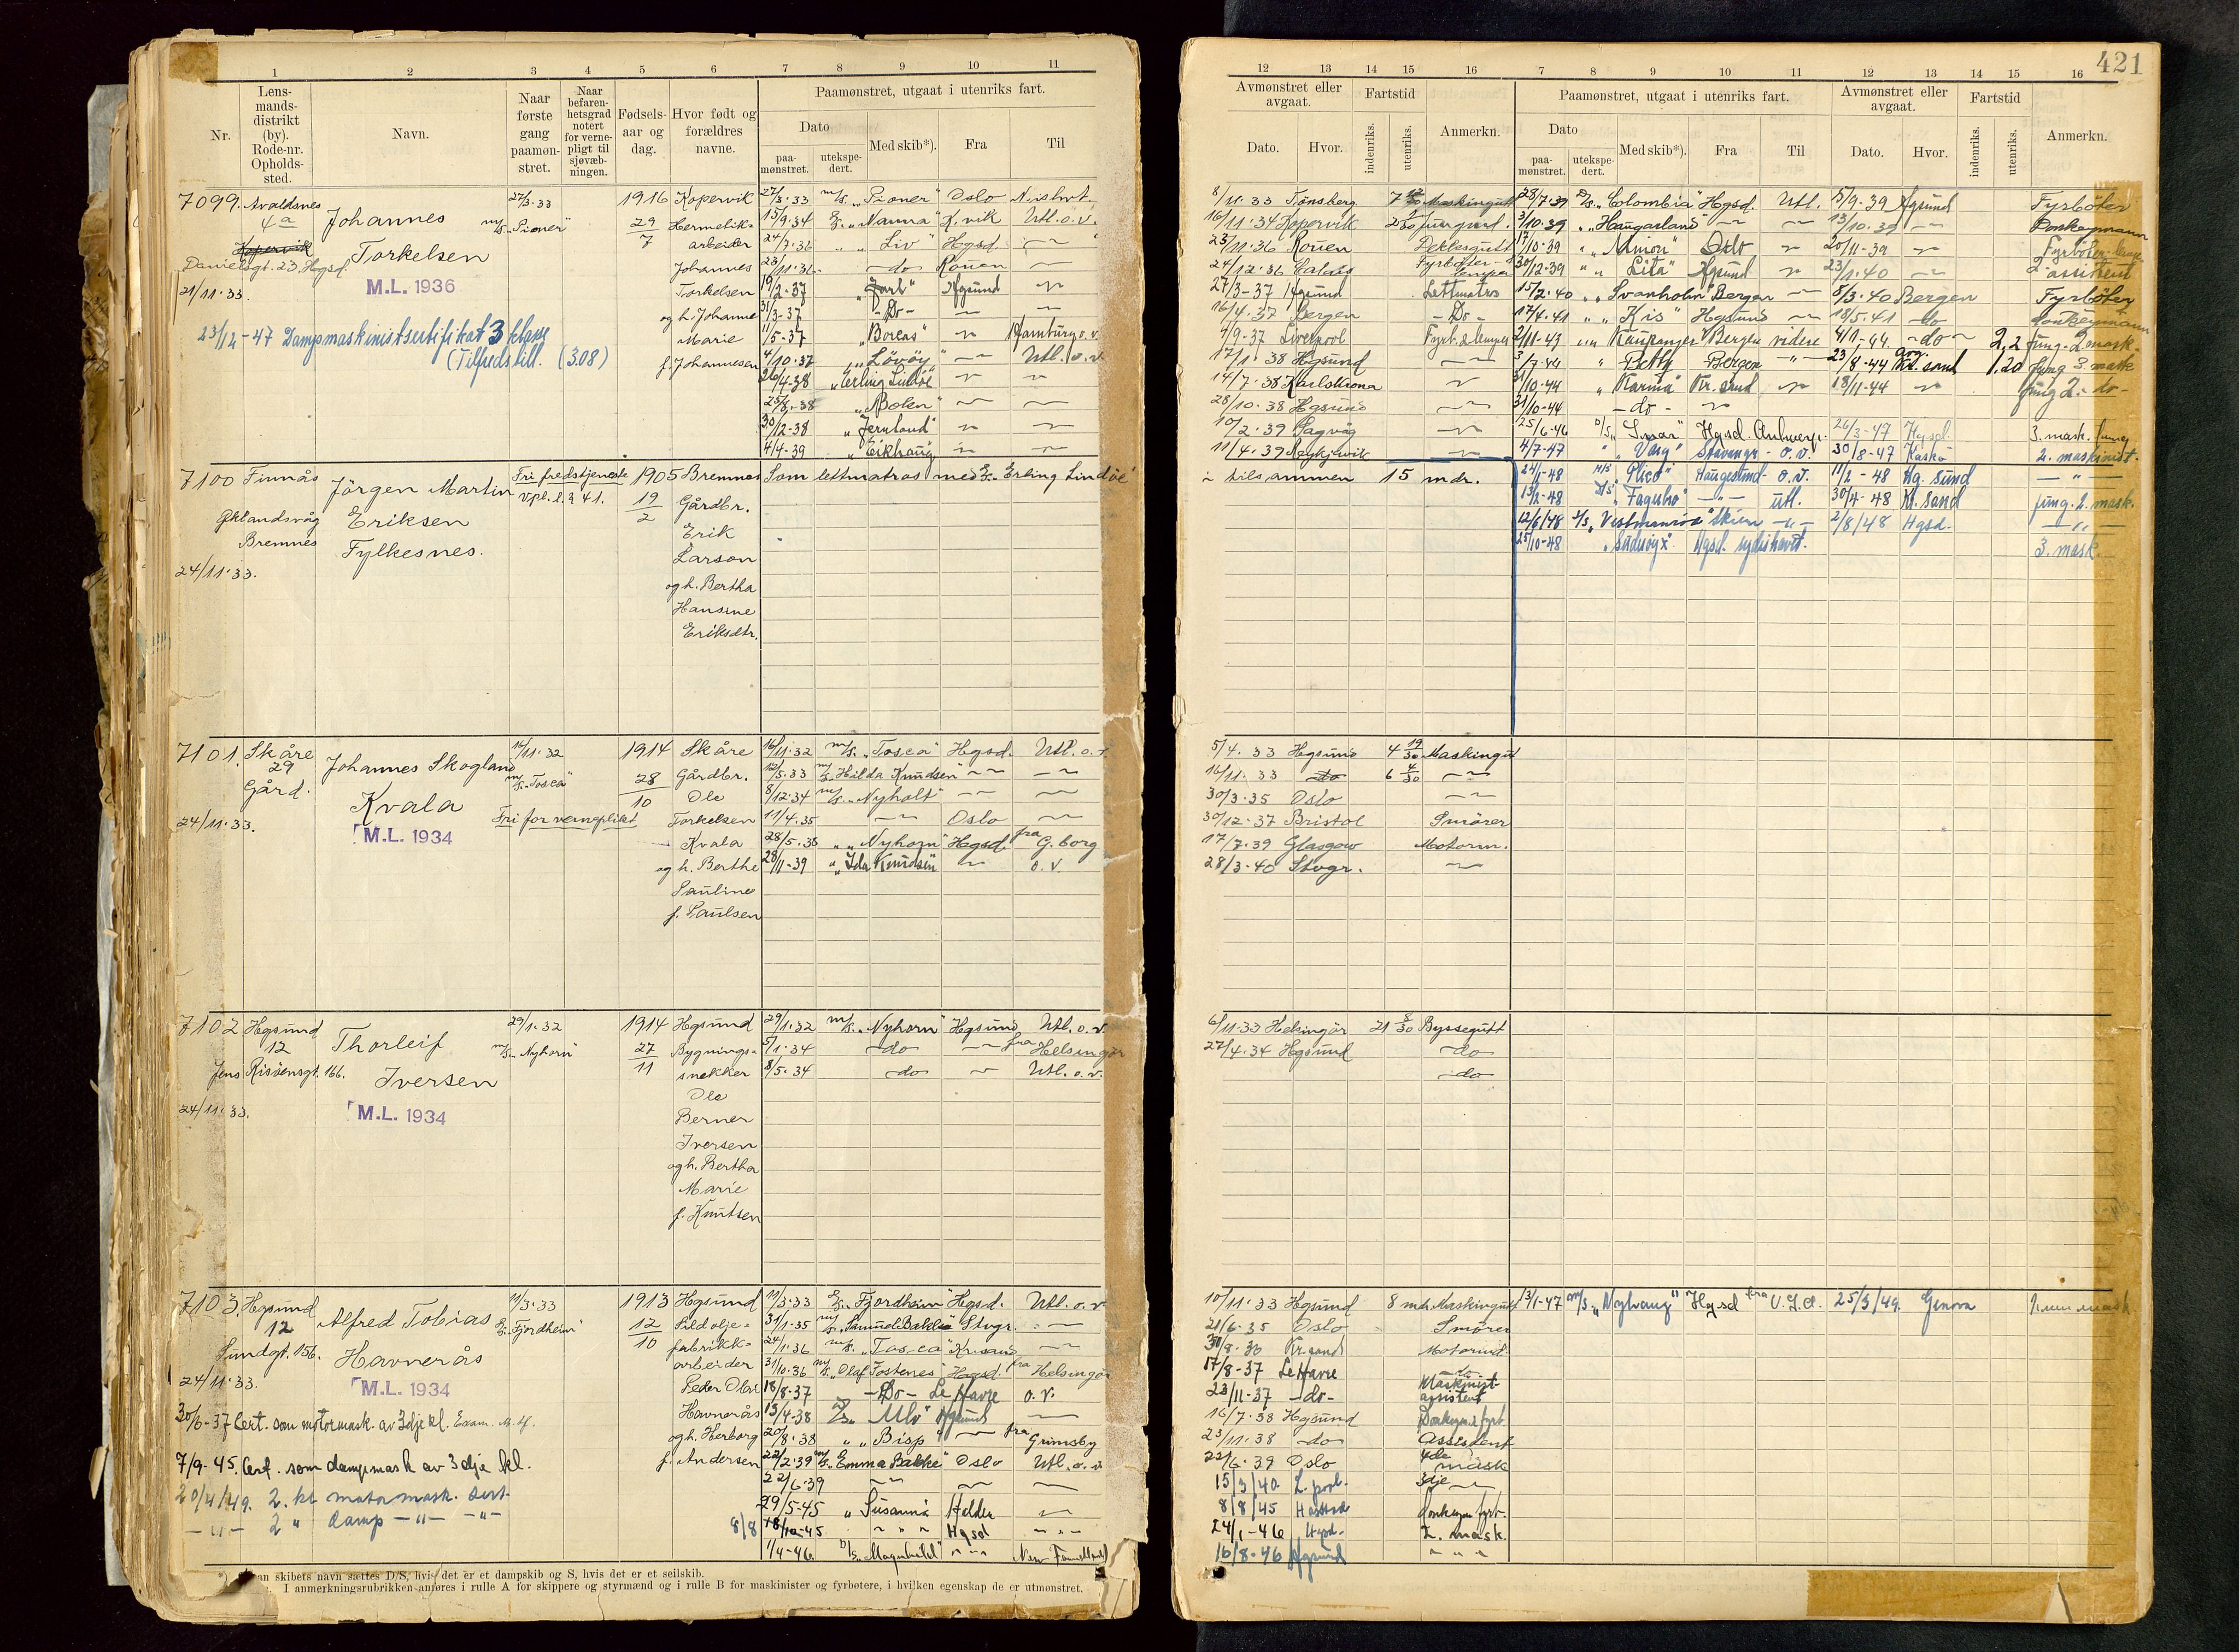 421
1 2 3 4 5 6 7 8 9 10 11
Nr.
Lens-
mands-
distrikt
(by).
Rode-nr.
Opholds-
sted.
Navn.
Naar
første
gang
paamøn-
stret.
Naar
befaren-
hetsgrad
notert
for verne-
pligt til
sjøvæb-
ningen.
Fødsels-
aar og
dag.
Hvor født og
forældres
navne.
Paamønstret, utgaat i utenriks fart.
Dato
paa-
mønstret.
utekspe-
dert.
Med skib*).
Fra
Til
7099. Avaldsnes
4a
Kopervik
Danielsgt. 23, Hgsd.
21/11.33.
Johannes
Torkelsen
M.L. 1936
23/12-47 Dampmaskinistsertifikat 3 klasse
(Tilfredstill. (308)
27/3.33
m/s. "Pioner"
1916
29
7
Kopervik
Hermetik-
arbeider
Johannes
Torkelsen
og h. Johanne
Marie
f. Johannesen
27/3.33 m/s. "Pioner" Oslo
15/9.34 "Nanna" K.vik Utl. o. v.
24/7.36 " "Liv" Hgsd. —
23/11.36 — do Rouen —
19/2-37 "Jarl" Hgsund
31/3-37 - Do - —
11/5-37 "Boreas" Hamburg o.v.
4/10.37 "Lövöy" — Utl. o. v.
26/4-38 "Erling Lindöe"
25/8.-38 "Bolen" —
30/12-38 "Jernland"
4/4-39 "Eikhaug"
7100 Finnås
Øklandsvåg
Bremnes
24/11.33.
Jörgen Martin
Eriksen
Fylkesnes.
Fri fredstjeneste
Vpl. l. § 41.
1905
19
2
Bremnes
Gårdbr.
Erik
Larson
og h. Bertha
Hansine
Eriksdtr.
Som lettmatros med Erling Lindöe
7101. Skåre
29
Gård.
24/11.33.
Johannes Skogland
Kvala
M.L. 1934
16/11.32
m/s. "Tosca"
Fri for verneplikt
1914
28
10
Skåre
Gårdbr.
Ole
Torkelsen
Kvala
og h. Berthe
Pauline
f. Paulsen
16/11.32 m/s. "Tosca" Hgsd. Utl. o. v.
12/5.33 m/s. Hilda Knudsen" — —
8/12.34 m/s. "Nyholt" — —
11/4.35 — Oslo —
28/5.35 " "Nyhorn" Hgsd. fra G.borg
28/11-39 " "Ida Knudsen" — o. v.
7102 Hgsund
12
Jens Risöensgt. 166.
24/11.33.
Thorleif
Iversen
M.L. 1934
29/1.32
m/s. "Nyhorn"
1914
27
11
Hgsund
Bygnings-
snekker
Ole
Berner
Iversen
og h. Bertha
Marie
f. Knutsen
29/1.32 m/s. "Nyhorn" Hgsund Utl. o. v.
5/1.34 —do— — fra Helsingör
8/5.34 —do — Utl. o. v.
7103. Hgsund
12
Sundgt. 156.
24/11.33.
Alfred Tobias
Havnerås
M.L. 1934
30/6-37 Cert. som motormask. av 3dje kl.
7/9-45. Cert. som dampmask av 3dje kl.
20/4/49. 2. kl motormask. sert.
— " — 2 " damp — " — — " —
11/3.33
"Fjordheim"
1913
12
10
Hgsund
Sildolje-
fabrikk-
arbeider
Peder Olai
Havnerås
og h. Herborg
f. Andersen
11/3.33 "Fjordheim" Hgsd. Utl. o. v.
31/1.35 m/s. "Samuel Bakke" Stvgr. —
24/1.36 m/s. "Tosca" Kr.sand —
31/10.36 m/s. "Olaf Fostenes" Hgsd. fra Helsingör
18/8-37 — Do — Le Havre o. v.
13/4-38 "Ulv" Hgsund —
20/8.38 " "Bisp" — fra Grimsby
22/2.39 m/s. "Emma Bakke" Oslo Utl. o. v.
22/6.39 — — —
29/5-45 "Susanna Helden —
8/8 18/10-45 " " " Hgsd — " —
1/4-46. D/S. "Magnhild" " " " New Foundland
*) Foran skibets navn sættes D/S, hvis det er et dampskib og S, hvis det er et seilskib.
I anmerkningsrubrikken anføres i rulle A for skippere og styrmænd og i rulle B for maskinister og fyrbøtere, i hvilken egenskap de er utmønstret.
12 13 14 15 16 7 8 9 10 11 12 13 14 15 16
Avmønstret eller
avgaat.
Dato.
Hvor.
Fartstid
indenriks.
utenriks.
Anmerkn.
Paamønstret, utgaat i utenriks fart.
Dato
paa-
mønstret.
utekspe-
dert.
Med skib*).
Fra
Til
Avmønstret eller
avgaat.
Dato.
Hvor.
Fartstid
indenriks.
utenriks.
Anmerkn.
8/11.33 Tönsberg 7 12/30 Maskingutt 28/7.39 D/s. "Colombia" Hgsd. Utl. 5/9.39 Hgsund Fyrböter
16/11.34 Kopervik Jungmand. 3/10.39 " "Haugarland" — — 13/10.39 — Donkeymann
23/11.36 Rouen Dekksgutt 17/10-39 " "Mimona" Oslo 20/11-39
24/12.36 Calais Fyrböter-lemper 30/12-39 " "Lita" Hgsund 23/1.40 — assistent
27/3-37 Hgsund Lettmatros 15/2.40 " "Svanholm" Bergen — 8/3.40 Bergen Fyrböter
16/4.37 Bergen — Do — 17/4.41 " "Kis" Hgsund — 18/5.41 — do Donkeymann
4/9.37 Liverpool Fyrb. & lemper 2/11-43 " "Kaupanger" Bergen videre 4/1.44. — do — 2,2 fung. 2 mask.
17/1.38 Hgsund — 3/7-44 " Betty Bergen — " — 23/8-44 Kr. sand 1,20 fung 3. mask
14/7.38 Karlskrona 31/10-44 " "Karina" Kr. sand 18/11-44 fung 2. - do -
28/10.38 Hgsund — 31/10-44 — do —
10/2.39 Sagvåg 25/6-46 D/S "Snar" Hgsd. Antwerp. 26/3-47 Hgsd. 3. mask. fung
11/4.39 Reykjavik 4/7-47 " "Varg" Stavanger - o.v. 30/8-47 Kaskö 2. maskinist.
tilsammen 15 mdr. 24/1-48 "Pico" Haugesund - o.v. 11/2-48 Hg. sund — " —
13/2-48 "Fagerbro" — " — utl. 30/4-48 Kr. sand fung. 2. mask.
12/6/48 "Vestmanröd" Skien — " — 2/8/48 Hgsd. — " —
25/10-48 "Suderøy X" Hgsd. sydishavet. 3. mask.
5/4.33 Hgsund 4 19/30 Maskingutt
16/11.33 do 6 4/30 —
30/3.35 Oslo —
30/12.37 Bristol Smörer
17/7.39 Glasgow Motorm.
28/3-40 Stvgr. —
6/11.33 Helsingör 21 8/30 Byssegutt
27/4.34 Hgsund do
do
10/11.33 Hgsund 8 mdr. Maskingutt 13/1-47 m/s. "Nyhaug" Hgsd fra U.S.A. 25/3/49. Genova mask
21/6.35 Oslo Smörer
31/8.36 Kr.sand Motorm.
17/8-37 Le Havre do
23/11-37 — do — Maskinist-assistent
16/7.38 Hgsund Donkeym & fyrb.
23/11.38 — do Assistent
22/6.39 Oslo 4de mask
15/3/40 L.pool. 3dje —
8/8/45 Harstad donkeym. fyrb.
24/1-46 Hgsd. 2. mask.
16/8-46 Hgsund " " "